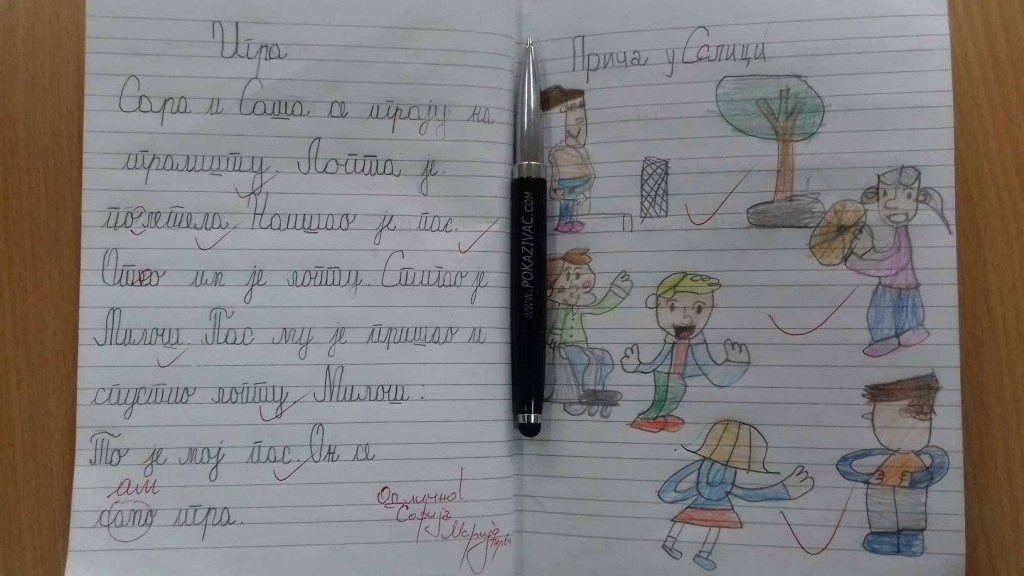 Игра
Сара и Саша се играју на
игралишту. Лопта је
полетела. Наишао је пас.
Отео им је лопту. Стигао је
Милош. Пас му је пришао и
спустио лопту. Милош:
То је мој пас. Он се
ам
само игра.
Одлично!
Софија
Марија
Прича у Слици
www.POKAZIVAC.COM